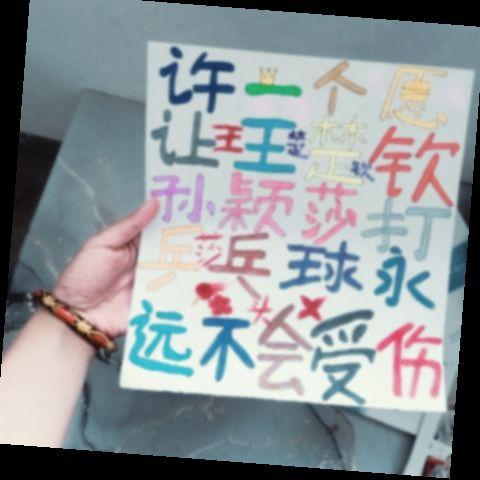 许一个愿
让王楚钦
孙颖莎打
乒乓球永
远不会受伤
王
楚
钦
莎
头